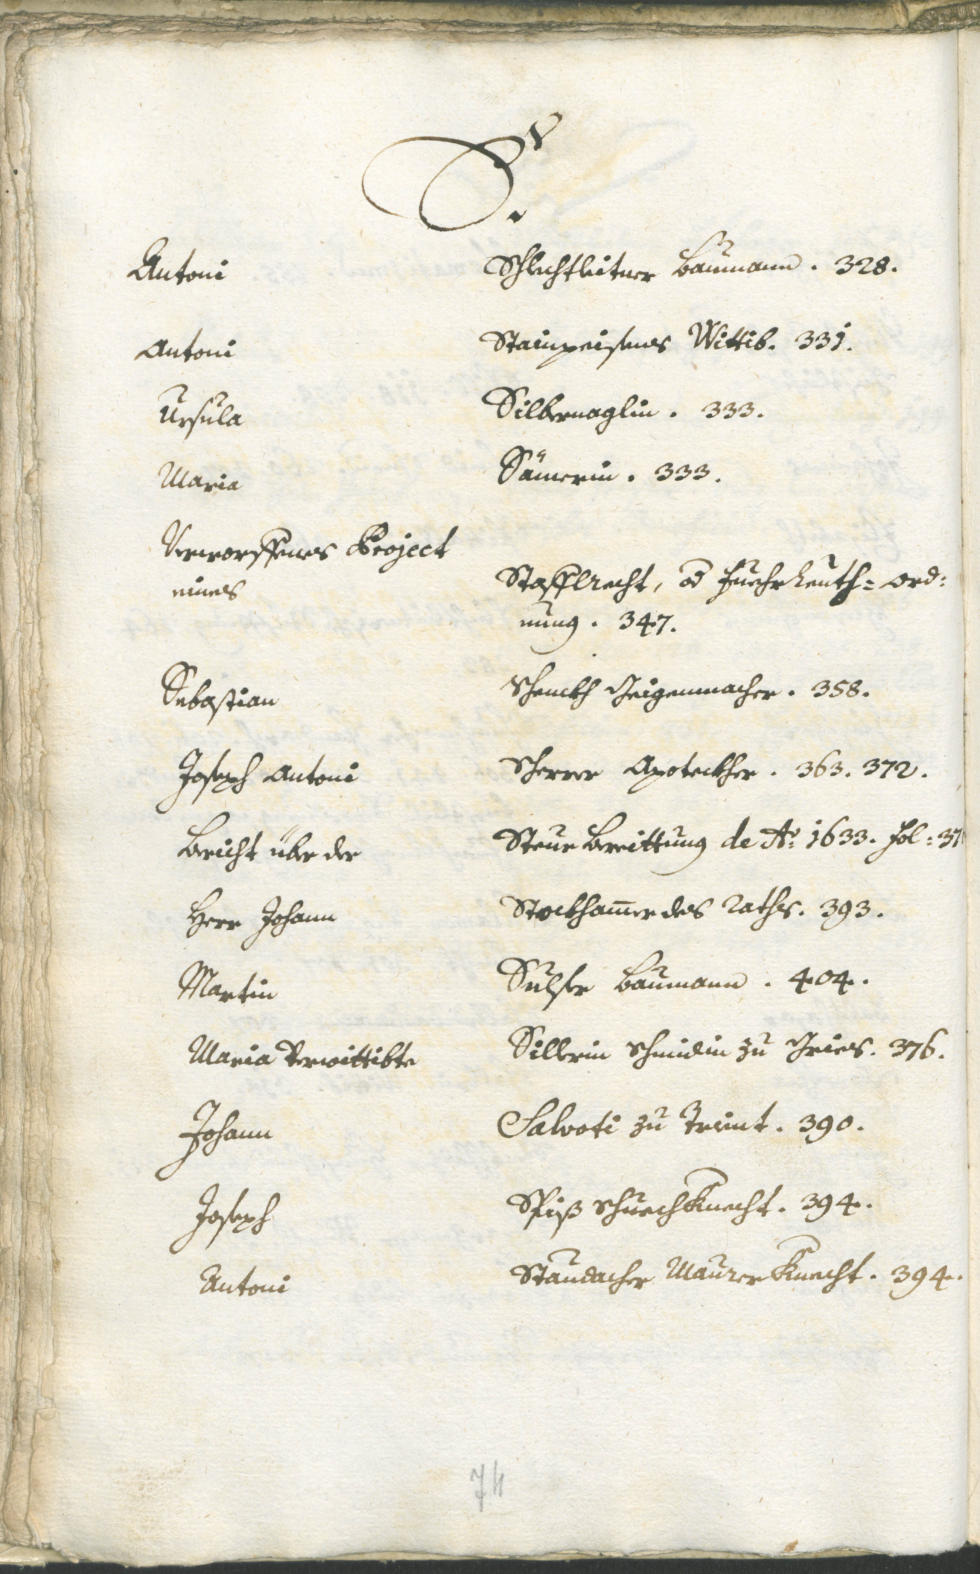 S.
Antoni Schlechtleitner Baumann. 328.
Antoni Stainpeisens Wittib. 331.
Ursula Silbernaglin. 333.
Maria Sämerin. 333.
Verworffenes Project
eines Stafflrecht, od Fuehrleuth=ord:
nung. 347.
Sebastian Schenkh Geigenmacher. 358.
Joseph Antoni Scherer Apoteckher. 363. 372.
Bericht über der Steur Bereittung de Aõ: 1633. fol:
Herr Johann Stockham̃er des Raths. 393.
Martin Sulser Baumann. 404.
Maria Verwittibte Silbrin Schmidin zu Gries. 376.
Johann Salvoti zu Trient. 390.
Joseph Spiß Schuech Knecht. 394.
Antoni Staudacher Maurer Knecht. 394.
74